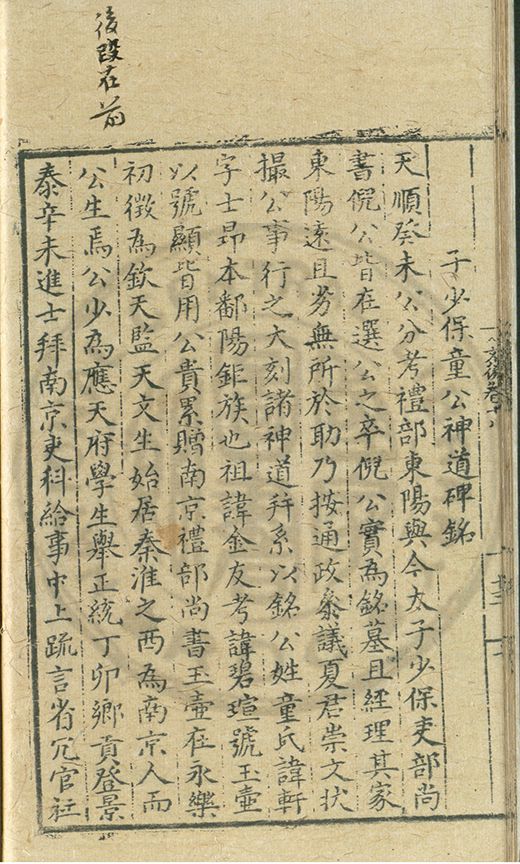 後段在前
子少保童公神道碑銘
天順癸未公分考禮部東陽與今太子少保吏部尚
書倪公皆在選公之卒倪公實為銘墓且經理其家
東陽遠且劣無所於助乃按通政叅議夏君崇文狀
撮公事行之大刻諸神道并系以銘公姓童氏諱軒
字士昂本鄱陽鉅族也祖諱金友考諱碧瑄號玉壺
以號顯皆用公貴累贈南京禮部尚書玉壺在永樂
初徵為欽天監天文生始居秦淮之西為南京人而
公生焉公少為應天府學生舉正統丁卯鄉貢登景
泰辛未進士拜南京吏科給事中上疏言省冗官社